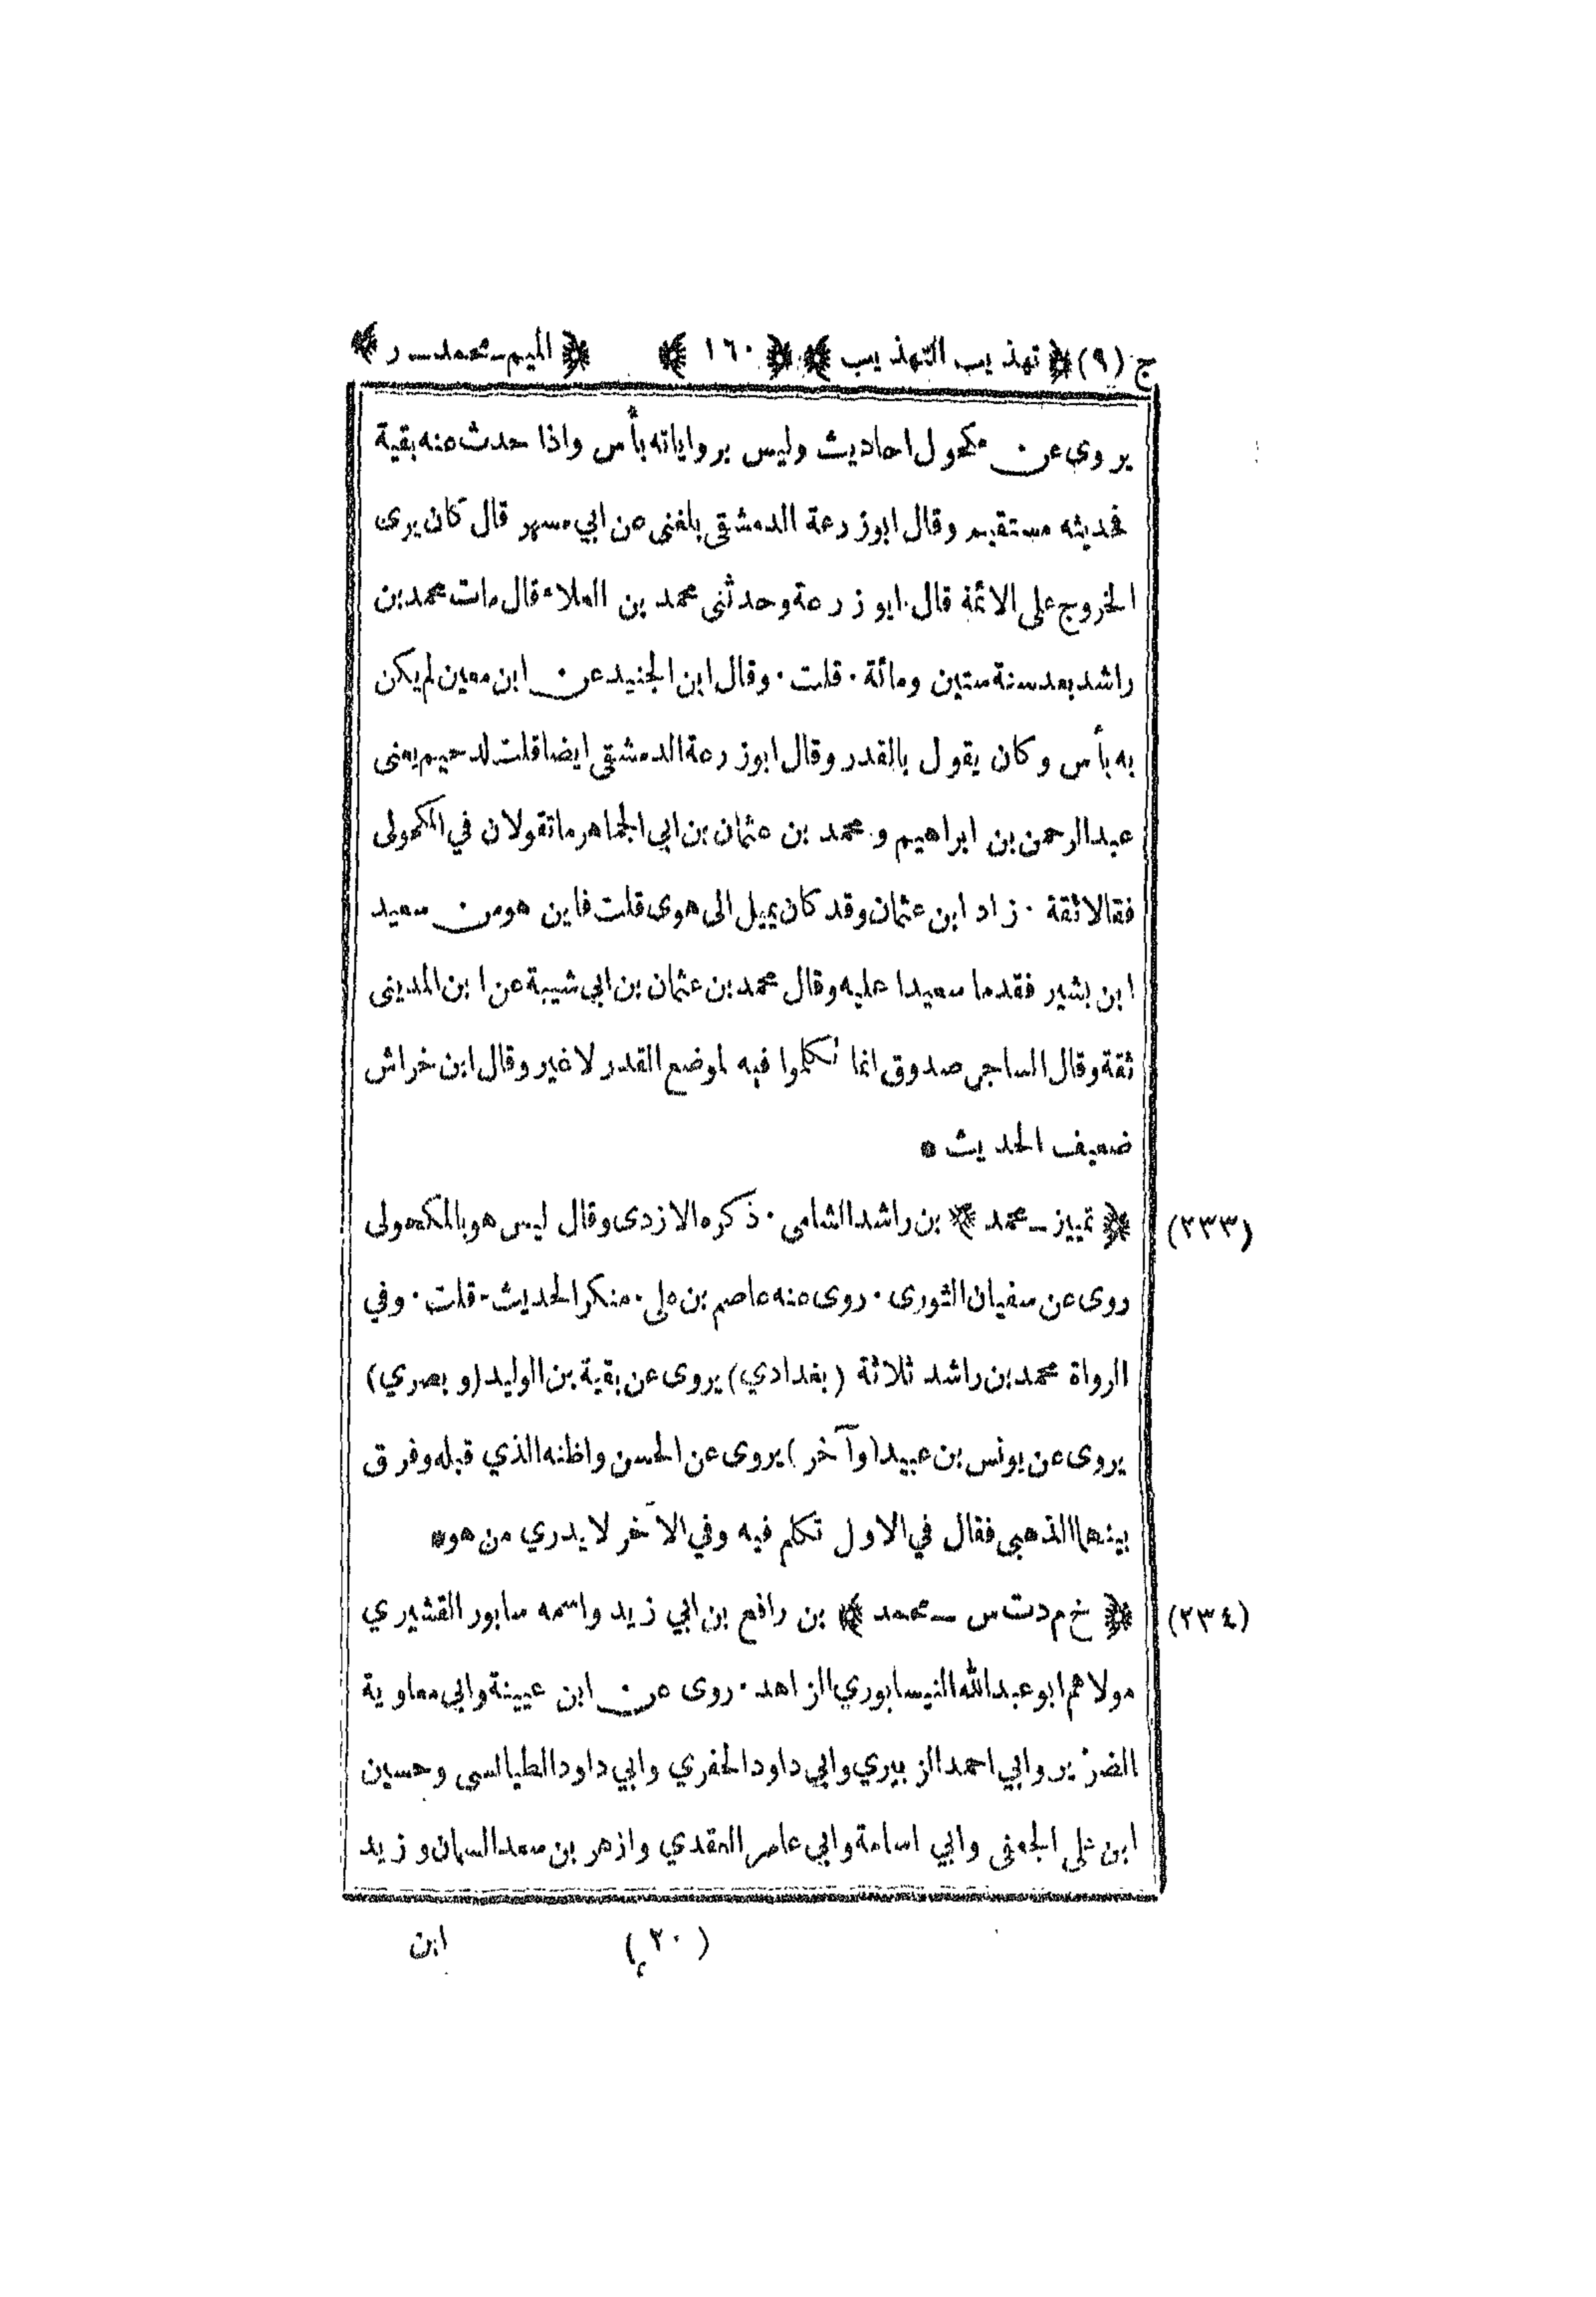 ج (٩) ﴿ تهذيب التهذيب ﴾ ﴿ ١٦٠ ﴾ ﴿ الميم ـ محمد ـ ر ﴾
يروى عن مكحول احاديث وليس برواياته بأس واذا حدث عنه بقية
فحديثه مستقيم وقال ابوزرعة الدمشقى بلغنى عن ابي مسهر قال كان يرى
الخروج على الائمة قال ابوزرعة وحدثنى محمد بن العلاء قال مات محمد بن
راشد بعد سنة ستين ومائة . قلت . وقال ابن الجنيد عن ابن معين لم يكن
به بأس وكان يقول بالقدر وقال ابوزرعة الدمشقى ايضا قلت لدحيم يعنى
عبدالرحمن بن ابراهيم ومحمد بن عثمان بن ابي الجماهر ما تقولان في المكحولى
فقالا ثقة . زاد ابن عثمان وقد كان يميل الى هوى قلت فاين هو من سعيد
ابن بشير فقدما سعيدا عليه وقال محمد بن عثمان بن ابي شيبة عن ابن المدينى
ثقة وقال الساجى صدوق انما تكلموا فيه لموضع القدر لا غير وقال ابن خراش
ضعيف الحديث *
(٢٣٣) ﴿ تمييز ـ محمد ﴾ بن راشد الشامى . ذكره الازدى وقال ليس هو بالمكحولى
روى عن سفيان الثورى . روى عنه عاصم بن على . منكر الحديث . قلت . وفي
الرواة محمد بن راشد ثلاثة (بغدادي) يروى عن بقية بن الوليد (وبصري)
يروى عن يونس بن عبيد (وآخر) يروى عن الحسن واظنه الذي قبله وفرق
بينهما الذهبى فقال في الاول تكلم فيه وفي الآخر لا يدري من هو *
(٢٣٤) ﴿ خ م د ت س ـ محمد ﴾ بن رافع بن ابي زيد واسمه سابور القشيري
مولاهم ابو عبدالله النيسابوري الزاهد . روى عن ابن عيينة وابي معاوية
الضرير وابي احمد الزبيري وابي داود الحفري وابي داود الطيالسى وحسين
ابن على الجعفى وابي اسامة وابي عامر العقدي وازهر بن سعد السمان وزيد
(٢٠) ابن